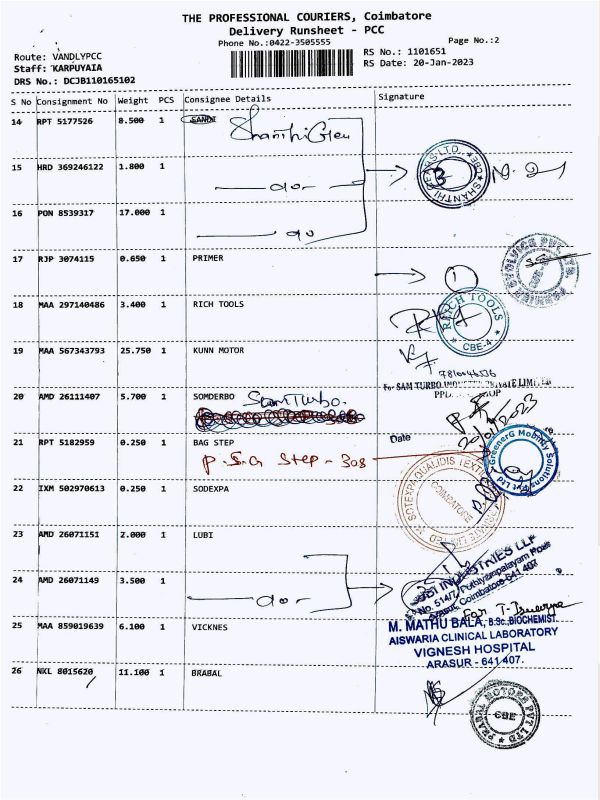 THE PROFESSIONAL COURIERS, Coimbatore
Delivery Runsheet - PCC
Phone No.:0422-3505555
Page No.:2
Route: VANDLYPCC
RS No.: 1101651
Staff: KARPUYAIA
RS Date: 20-Jan-2023
DRS No.: DCJB110165102
S No Consignment No Weight PCS Consignee Details Signature
14 RPT 5177526 8.500 1
15 HRD 369246122 1.800 1
SHANTHI GEARS LTD., CBE
16 PON 8539317 17.000 1
17 RJP 3074115 0.650 1 PRIMER
18 MAA 297140486 3.400 1 RICH TOOLS
RICH TOOLS CBE-4
19 MAA 567343793 25.750 1 KUNN MOTOR
For SAM TURBO INDUSTRY PRIVATE LIMITED
20 AMD 26111407 5.700 1 SOMDERBO Sam Turbo.
20/01/2023
Date
21 RPT 5182959 0.250 1 BAG STEP
P.S.G Step - 308
GreenerG Mobility Solutions Pvt Ltd
22 IXM 502970613 0.250 1 SODEXPA
COIMBATORE
23 AMD 26071151 2.000 1 LUBI
24 AMD 26071149 3.500 1
INDUSTRIES LLP
Arasur, Coimbatore-641 407
25 MAA 859019639 6.100 1 VICKNES
M. MATHU BALA, B.Sc.,BIOCHEMIST.
AISWARIA CLINICAL LABORATORY
VIGNESH HOSPITAL
ARASUR - 641 407.
26 NKL 8015620 11.100 1 BRABAL
PRABAL MOTORS PVT LTD CBE